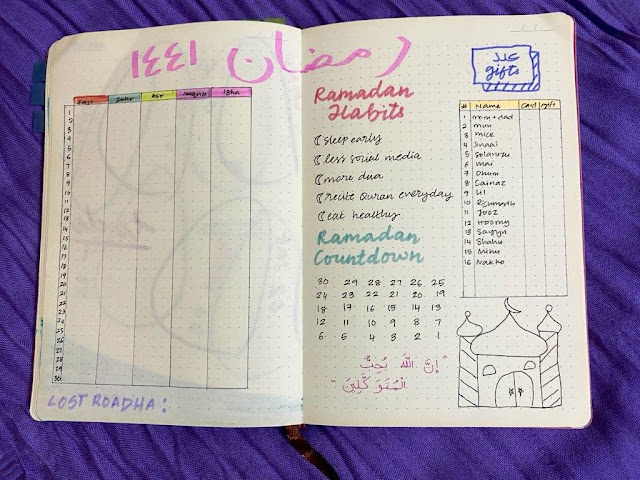 رمضان ١٤٤١
Fajr Zuhr Asr Magrib Isha
1
2
3
4
5
6
7
8
9
10
11
12
13
14
15
16
17
18
19
20
21
22
23
24
25
26
27
28
29
30
LOST ROADHA:
Ramadan
Habits
sleep early
less social media
more dua
recite Quran everyday
eat healthy
Ramadan
Countdown
30 29 28 27 26 25
24 23 22 21 20 19
18 17 16 15 14 13
12 11 10 9 8 7
6 5 4 3 2 1
"إِنَّ اللَّهَ يُحِبُّ
الْمُتَوَكِّلِينَ"
عيد
gifts
# Name Card gift
1 mom + dad
2 mun
3 mick
4 Jinaai
5
6 mai
7 Dhum
8 Cainaz
9 Lil
10
11 Jooz
12 Hoomy
13
14 Shahu
15 Minu
16 Nakko